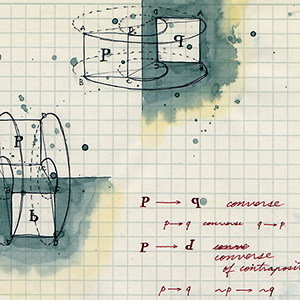 A
P
q
B
P
P → q converse
p → q converse q → p
P → d conve
converse
of contraposit
p → q ~p → ~q